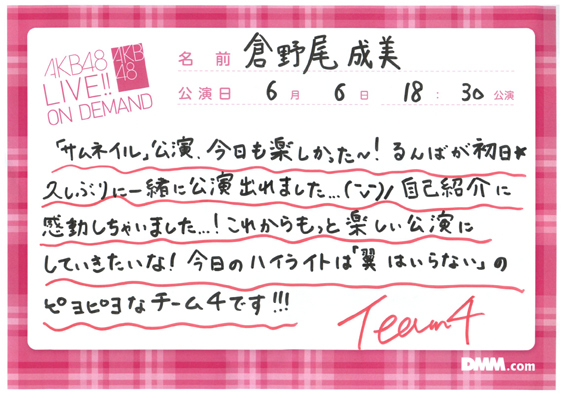 AKB48
LIVE!!
ON DEMAND
AKB
48
名前 倉野尾 成美
公演日 6月 6日 18:30公演
「サムネイル」公演、今日も楽しかった〜! るんばが初日★
久しぶりに一緒に公演出れました...(˘⌣˘)/ 自己紹介に
感動しちゃいました...! これからもっと楽しい公演に
していきたいな! 今日のハイライトは「翼はいらない」の
ピヨピヨなチーム4です!!!
Team4
DMM.com